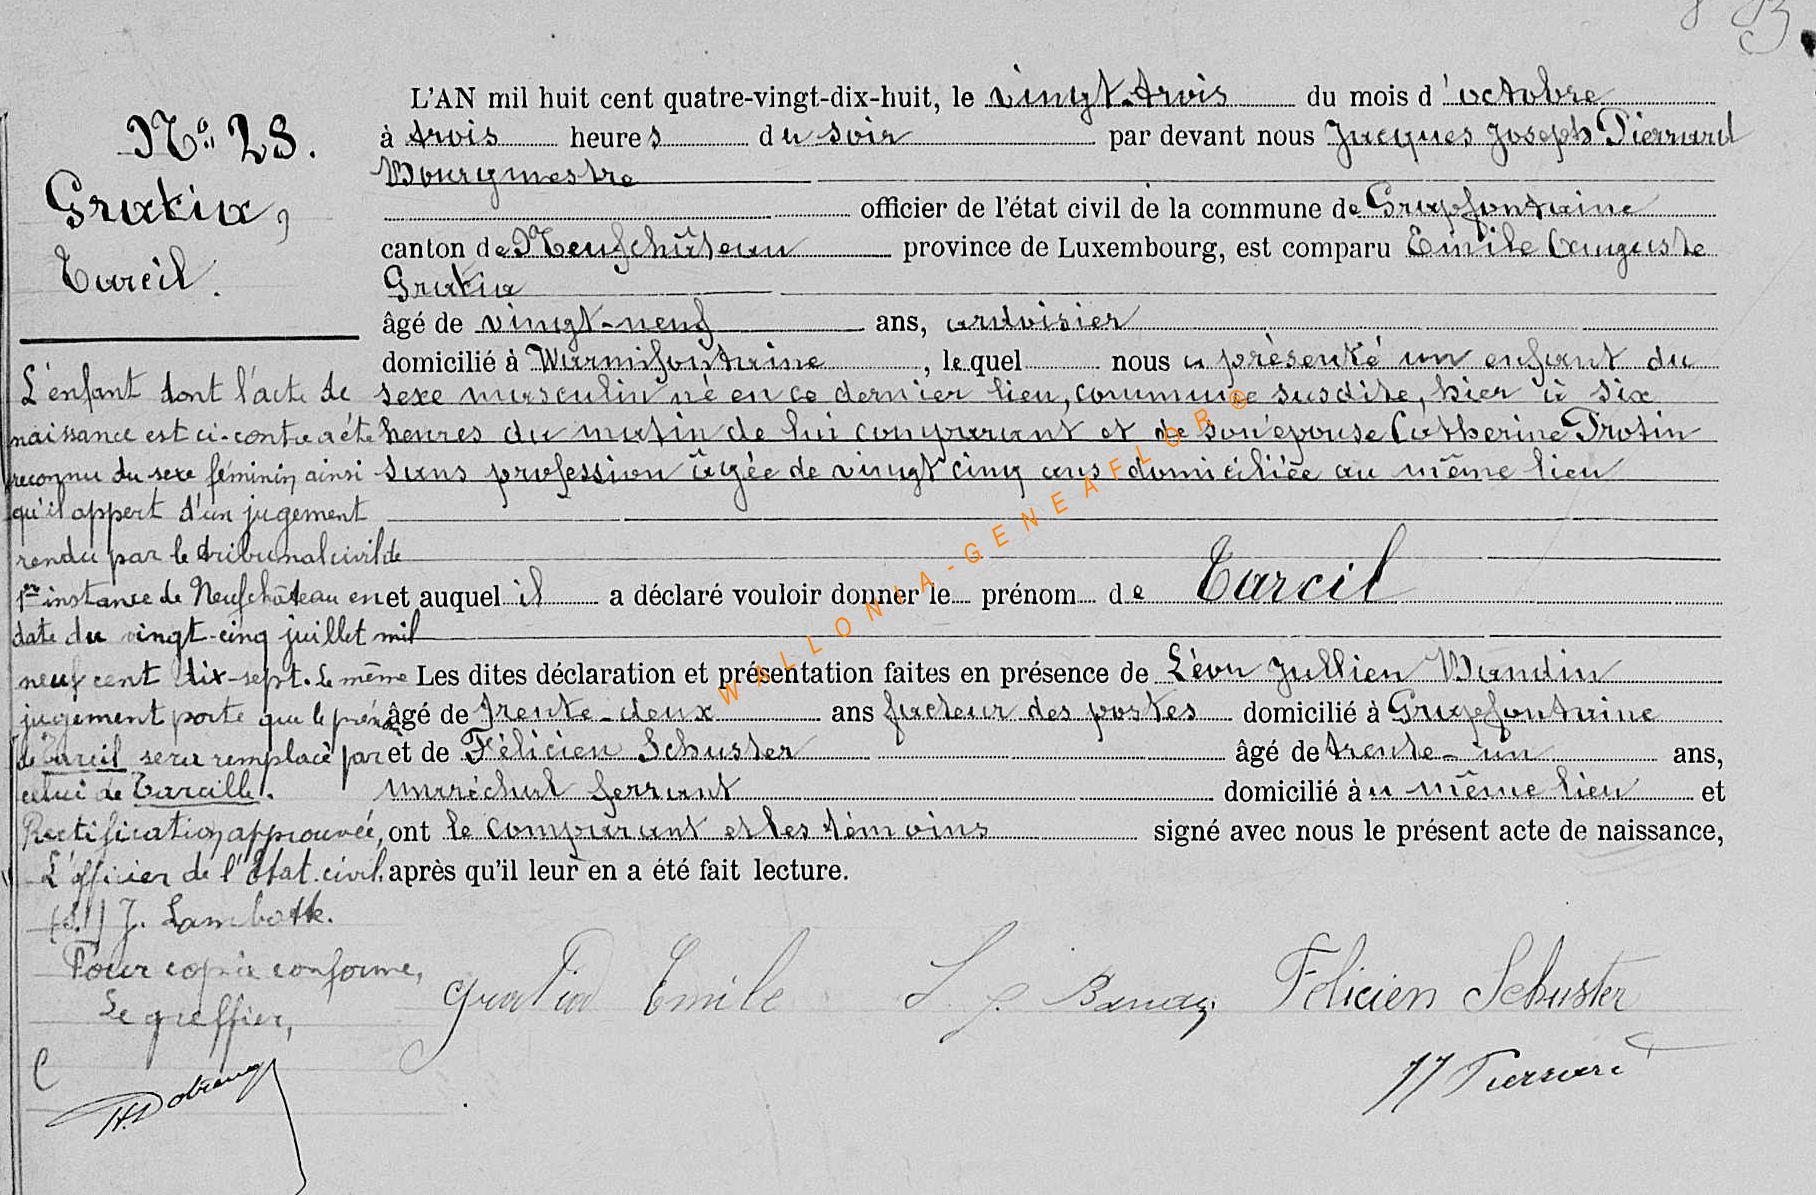 N° 28.
Gratia,
Tarcil.
L'enfant dont l'acte de
naissance est ci-contre a été
reconnu du sexe féminin ainsi
qu'il appert d'un jugement
rendu par le tribunal civil de
1ère instance de Neufchâteau en
date du vingt-cinq juillet mil
neuf cent dix-sept. Le même
jugement porte que le prénom
de Tarcil sera remplacé par
celui de Tarcille.
Rectification approuvée,
L'officier de l'Etat-civil,
(s.) J. Lambotte.
Pour copie conforme,
Le greffier,
L'AN mil huit cent quatre-vingt-dix-huit, le vingt-trois du mois d'octobre
à trois heures du soir par devant nous Jacques Joseph Pierrard
Bourgmestre
officier de l'état civil de la commune de Grapfontaine
canton de Neufchâteau province de Luxembourg, est comparu Emile Auguste
Gratia
âgé de vingt-neuf ans, ardoisier
domicilié à Warmifontaine, lequel nous a présenté un enfant du
sexe masculin né en ce dernier lieu, commune susdite, hier à six
heures du matin de lui comparant et de son épouse Catherine Protin
sans profession âgée de vingt cinq ans domiciliée au même lieu
et auquel il a déclaré vouloir donner le prénom de Tarcil
Les dites déclaration et présentation faites en présence de Léon Jullien Bandin
âgé de trente-deux ans facteur des postes domicilié à Grapfontaine
et de Félicien Schuster âgé de trente-un ans,
maréchal ferrant domicilié au même lieu et
ont le comparant et les témoins signé avec nous le présent acte de naissance,
après qu'il leur en a été fait lecture.
Gratia Emile Félicien Schuster
JJ Pierrard
WALLONIA-GENEAFLOR®